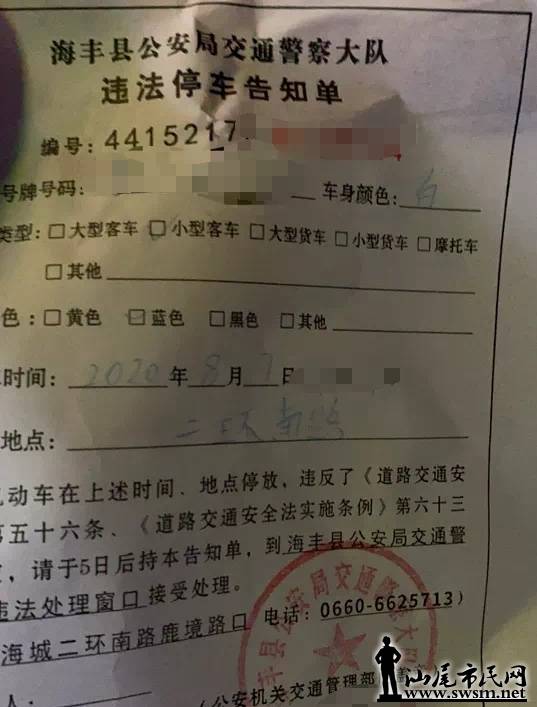 海丰县公安局交通警察大队
违法停车告知单
编号：4415217
号牌号码： 车身颜色：白
类型：□大型客车 □小型客车 □大型货车 □小型货车 □摩托车
□其他
色：□黄色 ☑蓝色 □黑色 □其他
时间：2020年8月7日
地点：二环南路
动车在上述时间、地点停放，违反了《道路交通安
五十六条、《道路交通安全法实施条例》第六十三
，请于5日后持本告知单，到海丰县公安局交通警
违法处理窗口接受处理。
海城二环南路鹿境路口 电话：0660-6625713）
人：
（公安机关交通管理部
丰县公安局交通警察大队
汕尾市民网
www.swsm.net